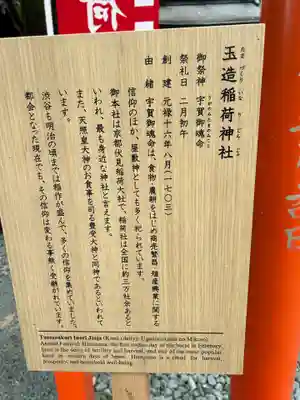 玉造稲荷神社
たまつくりいなりじんじゃ
御祭神　宇賀御魂命
うかのみたまのみこと
祭礼日　二月初午
創建　元禄十六年八月（一七〇三）
由緒　宇賀御魂命は、食物・農耕をはじめ商売繁昌、殖産興業に関する
信仰のほか、屋敷神としても多く祀られています。
御本社は京都伏見稲荷大社で、稲荷社は全国に約三万社余あると
いわれ、最も身近な神社と言えます。
また、天照皇大神のお食事を司る豊受大神と同神であるといわれて
います。
渋谷も明治の頃までは稲作が盛んで、多くの信仰を集めていました。
都会となった現在でも、その信仰は変わる事無く受継がれています。
Tamatsukuri Inari Jinja (Kami (deity): Uganomitama no Mikoto)
Annual Festival: Hatsuuma - the first zodiac day of the horse in February.
Inari is the deity of fertility and harvest, and one of the most popular